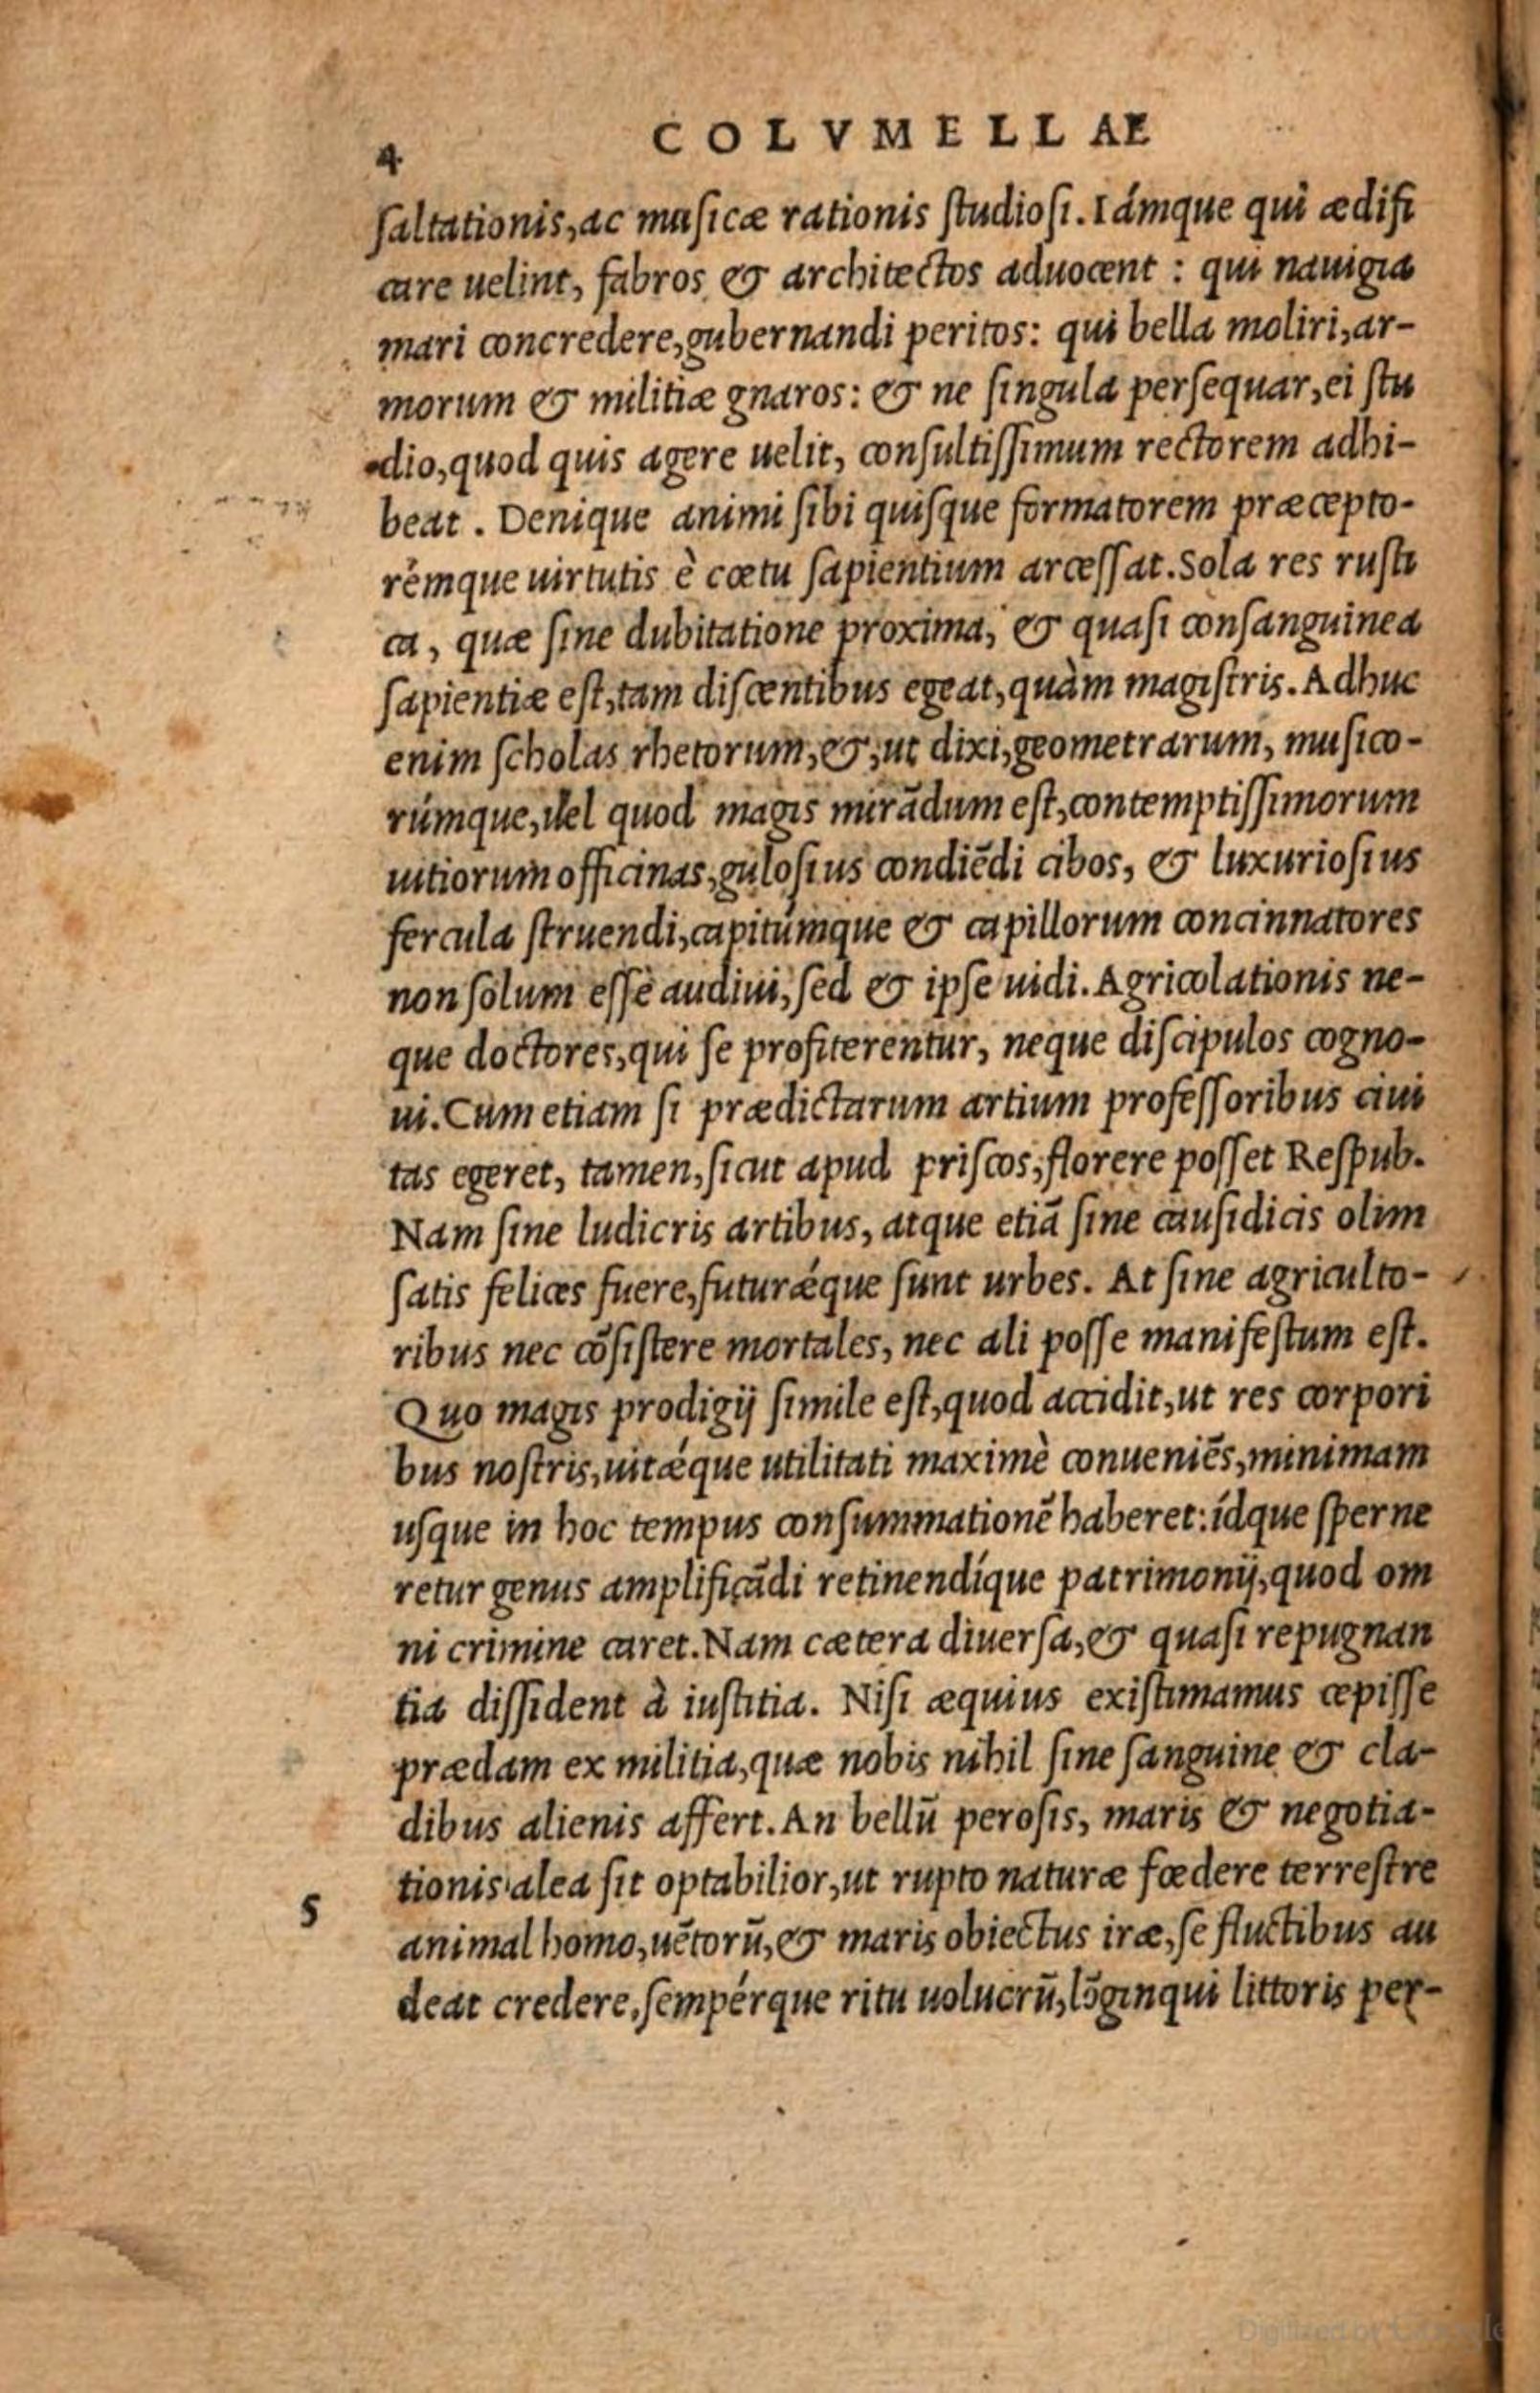 4
COLVMELLAE
ſaltationis,ac muſicæ rationis ſtudioſi. Iámque qui ædifi
care uelint, fabros & architectos aduocent : qui nauigia
mari concredere,gubernandi peritos: qui bella moliri,ar-
morum & militiæ gnaros: & ne ſingula perſequar,ei ſtu
dio,quod quis agere uelit, conſultiſſimum rectorem adhi-
beat . Denique animi ſibi quiſque formatorem præcepto-
rémque uirtutis è cœtu ſapientium arceſſat. Sola res ruſti
ca, quæ ſine dubitatione proxima, & quaſi conſanguinea
ſapientiæ eſt,tam diſcentibus egeat,quàm magiſtris. Adhuc
enim ſcholas rhetorum,&,ut dixi,geometrarum, muſico-
rúmque,uel quod magis mirādum eſt,contemptiſſimorum
uitiorum officinas,guloſius condiēdi cibos, & luxurioſius
fercula ſtruendi,capitúmque & capillorum concinnatores
non ſolum eſſe audiui,ſed & ipſe uidi. Agricolationis ne-
que doctores,qui ſe profiterentur, neque diſcipulos cogno-
ui. Cum etiam ſi prædictarum artium profeſſoribus ciui
tas egeret, tamen,ſicut apud priſcos,florere poſſet Reſpub.
Nam ſine ludicris artibus, atque etiā ſine cauſidicis olim
ſatis felices fuere,futurǽque ſunt urbes. At ſine agriculto-
ribus nec cōſiſtere mortales, nec ali poſſe manifeſtum eſt.
Quo magis prodigij ſimile eſt,quod accidit,ut res corpori
bus noſtris,uitǽque utilitati maximè conueniēs,minimam
uſque in hoc tempus conſummationē haberet:ídque ſperne
retur genus amplificādi retinendíque patrimonij,quod om
ni crimine caret. Nam cætera diuerſa,& quaſi repugnan
tia diſſident à iuſtitia. Niſi æquius exiſtimamus cepiſſe
prædam ex militia,quæ nobis nihil ſine ſanguine & cla-
dibus alienis affert. An bellū peroſis, maris & negotia-
tionis alea ſit optabilior,ut rupto naturæ fœdere terreſtre
5
animal homo,uētorū,& maris obiectus iræ,ſe fluctibus au
deat credere,ſempérque ritu uolucrū,lōginqui littoris per-
Digitized by Google